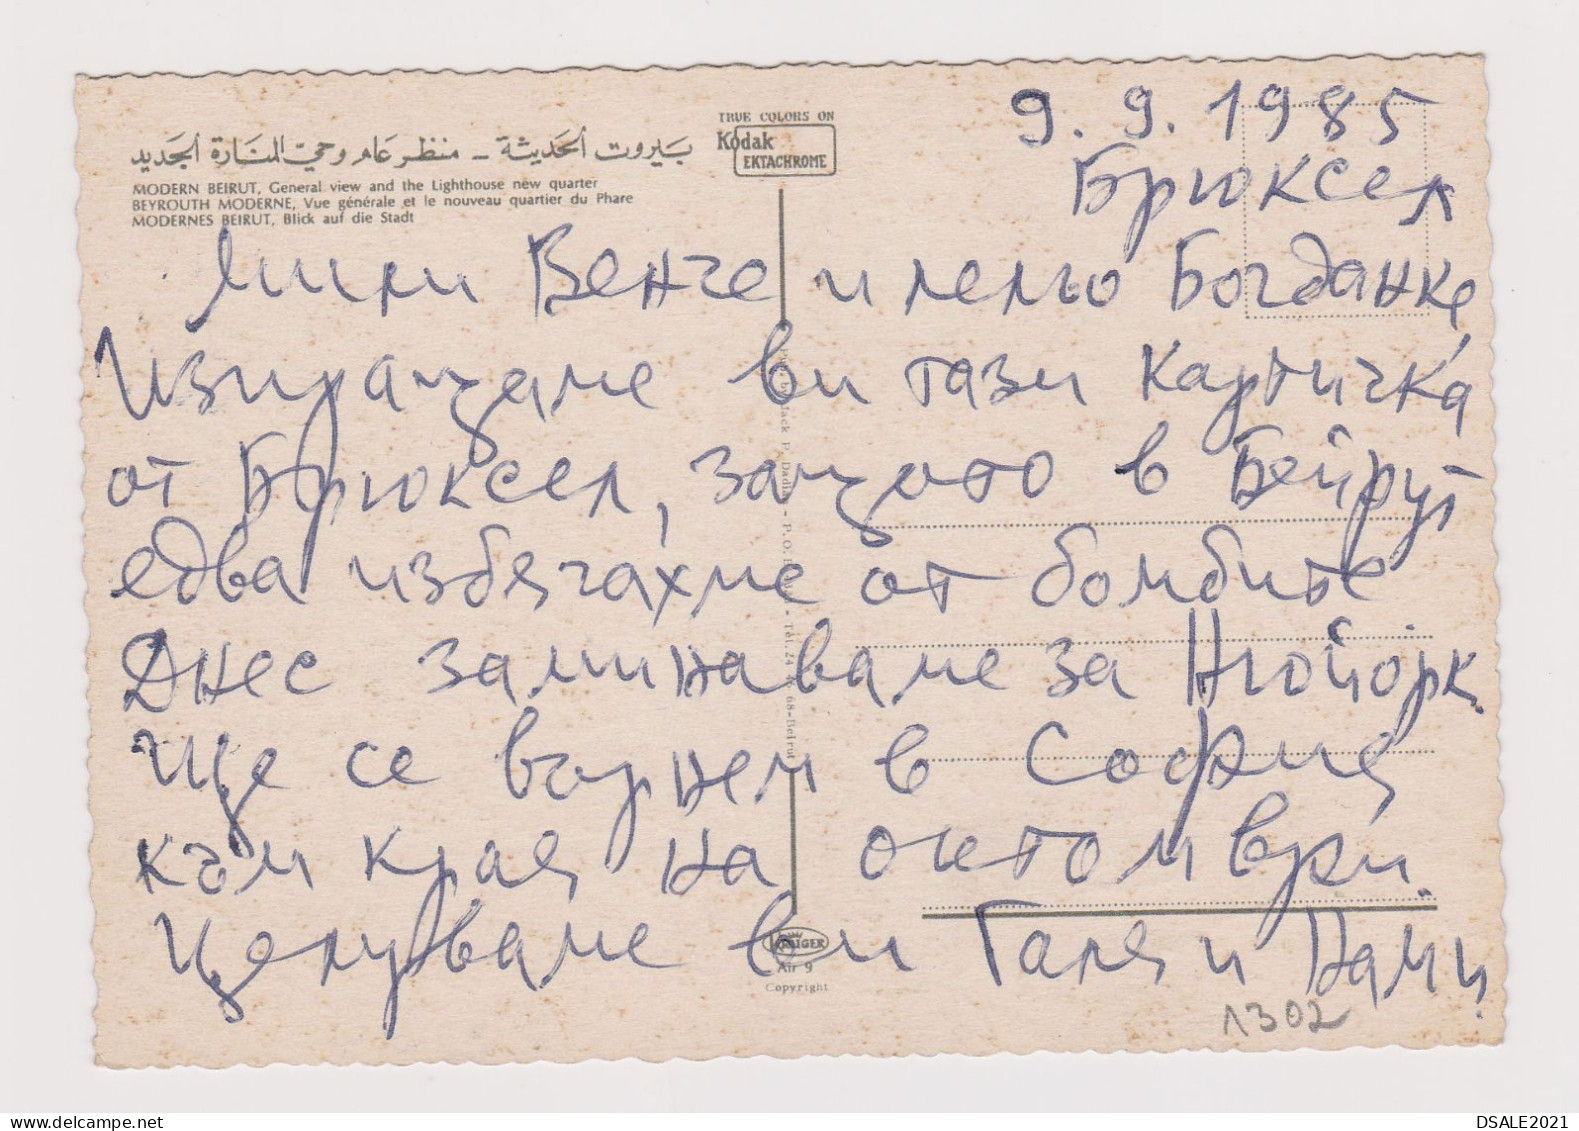 TRUE COLORS ON
Kodak
EKTACHROME
بيروت الحديثة - منظر عام وحي المنارة الجديد
MODERN BEIRUT, General view and the Lighthouse new quarter
BEYROUTH MODERNE, Vue générale et le nouveau quartier du Phare
MODERNES BEIRUT, Blick auf die Stadt
9. 9. 1985
Брюксел
Мили Венче и лельо Богданке
Изпращаме ви тази картичка
от Брюксел, защото в Бейрут
едва избягахме от бомбите
Днес заминаваме за Нюйорк.
Ще се върнем в София
към края на октомври.
Целуваме ви Галя и
KRÜGER
Air 9
Copyright
1302
DSALE2021